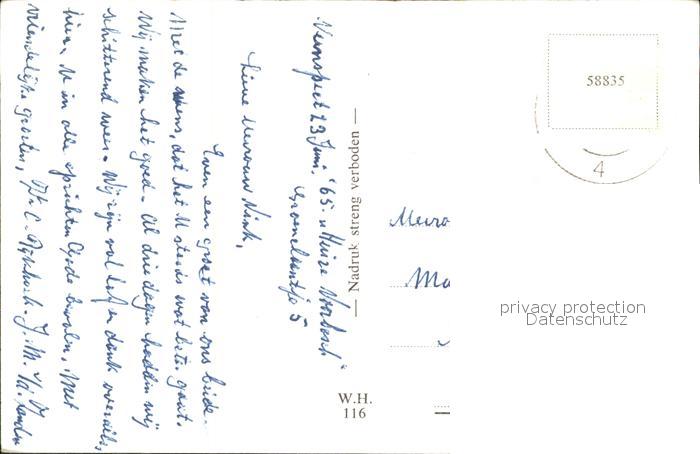 Nunspeet 23 Juni '65. "Huize
5
Lieve Mevrouw Nink,
Even een groet van ons beide.
Met de wens, dat het U steeds wat beter gaat.
Wij maken het goed. Al drie dagen hadden wij
schitterend weer. Wij zijn vol lof en dank overal
hier. U in alle opzichten Gods bevolen, Met
vriendelijke groeten,
— Nadruk streng verboden —
W.H.
116
58835
4
Mevro
Ma
privacy protection
Datenschutz